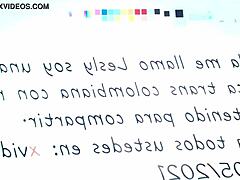 XVIDEOS.COM
la me llamo Lesly soy una
ca trans colombiana con
tenido para compartir.
a todos ustedes en: xvid
05/2021